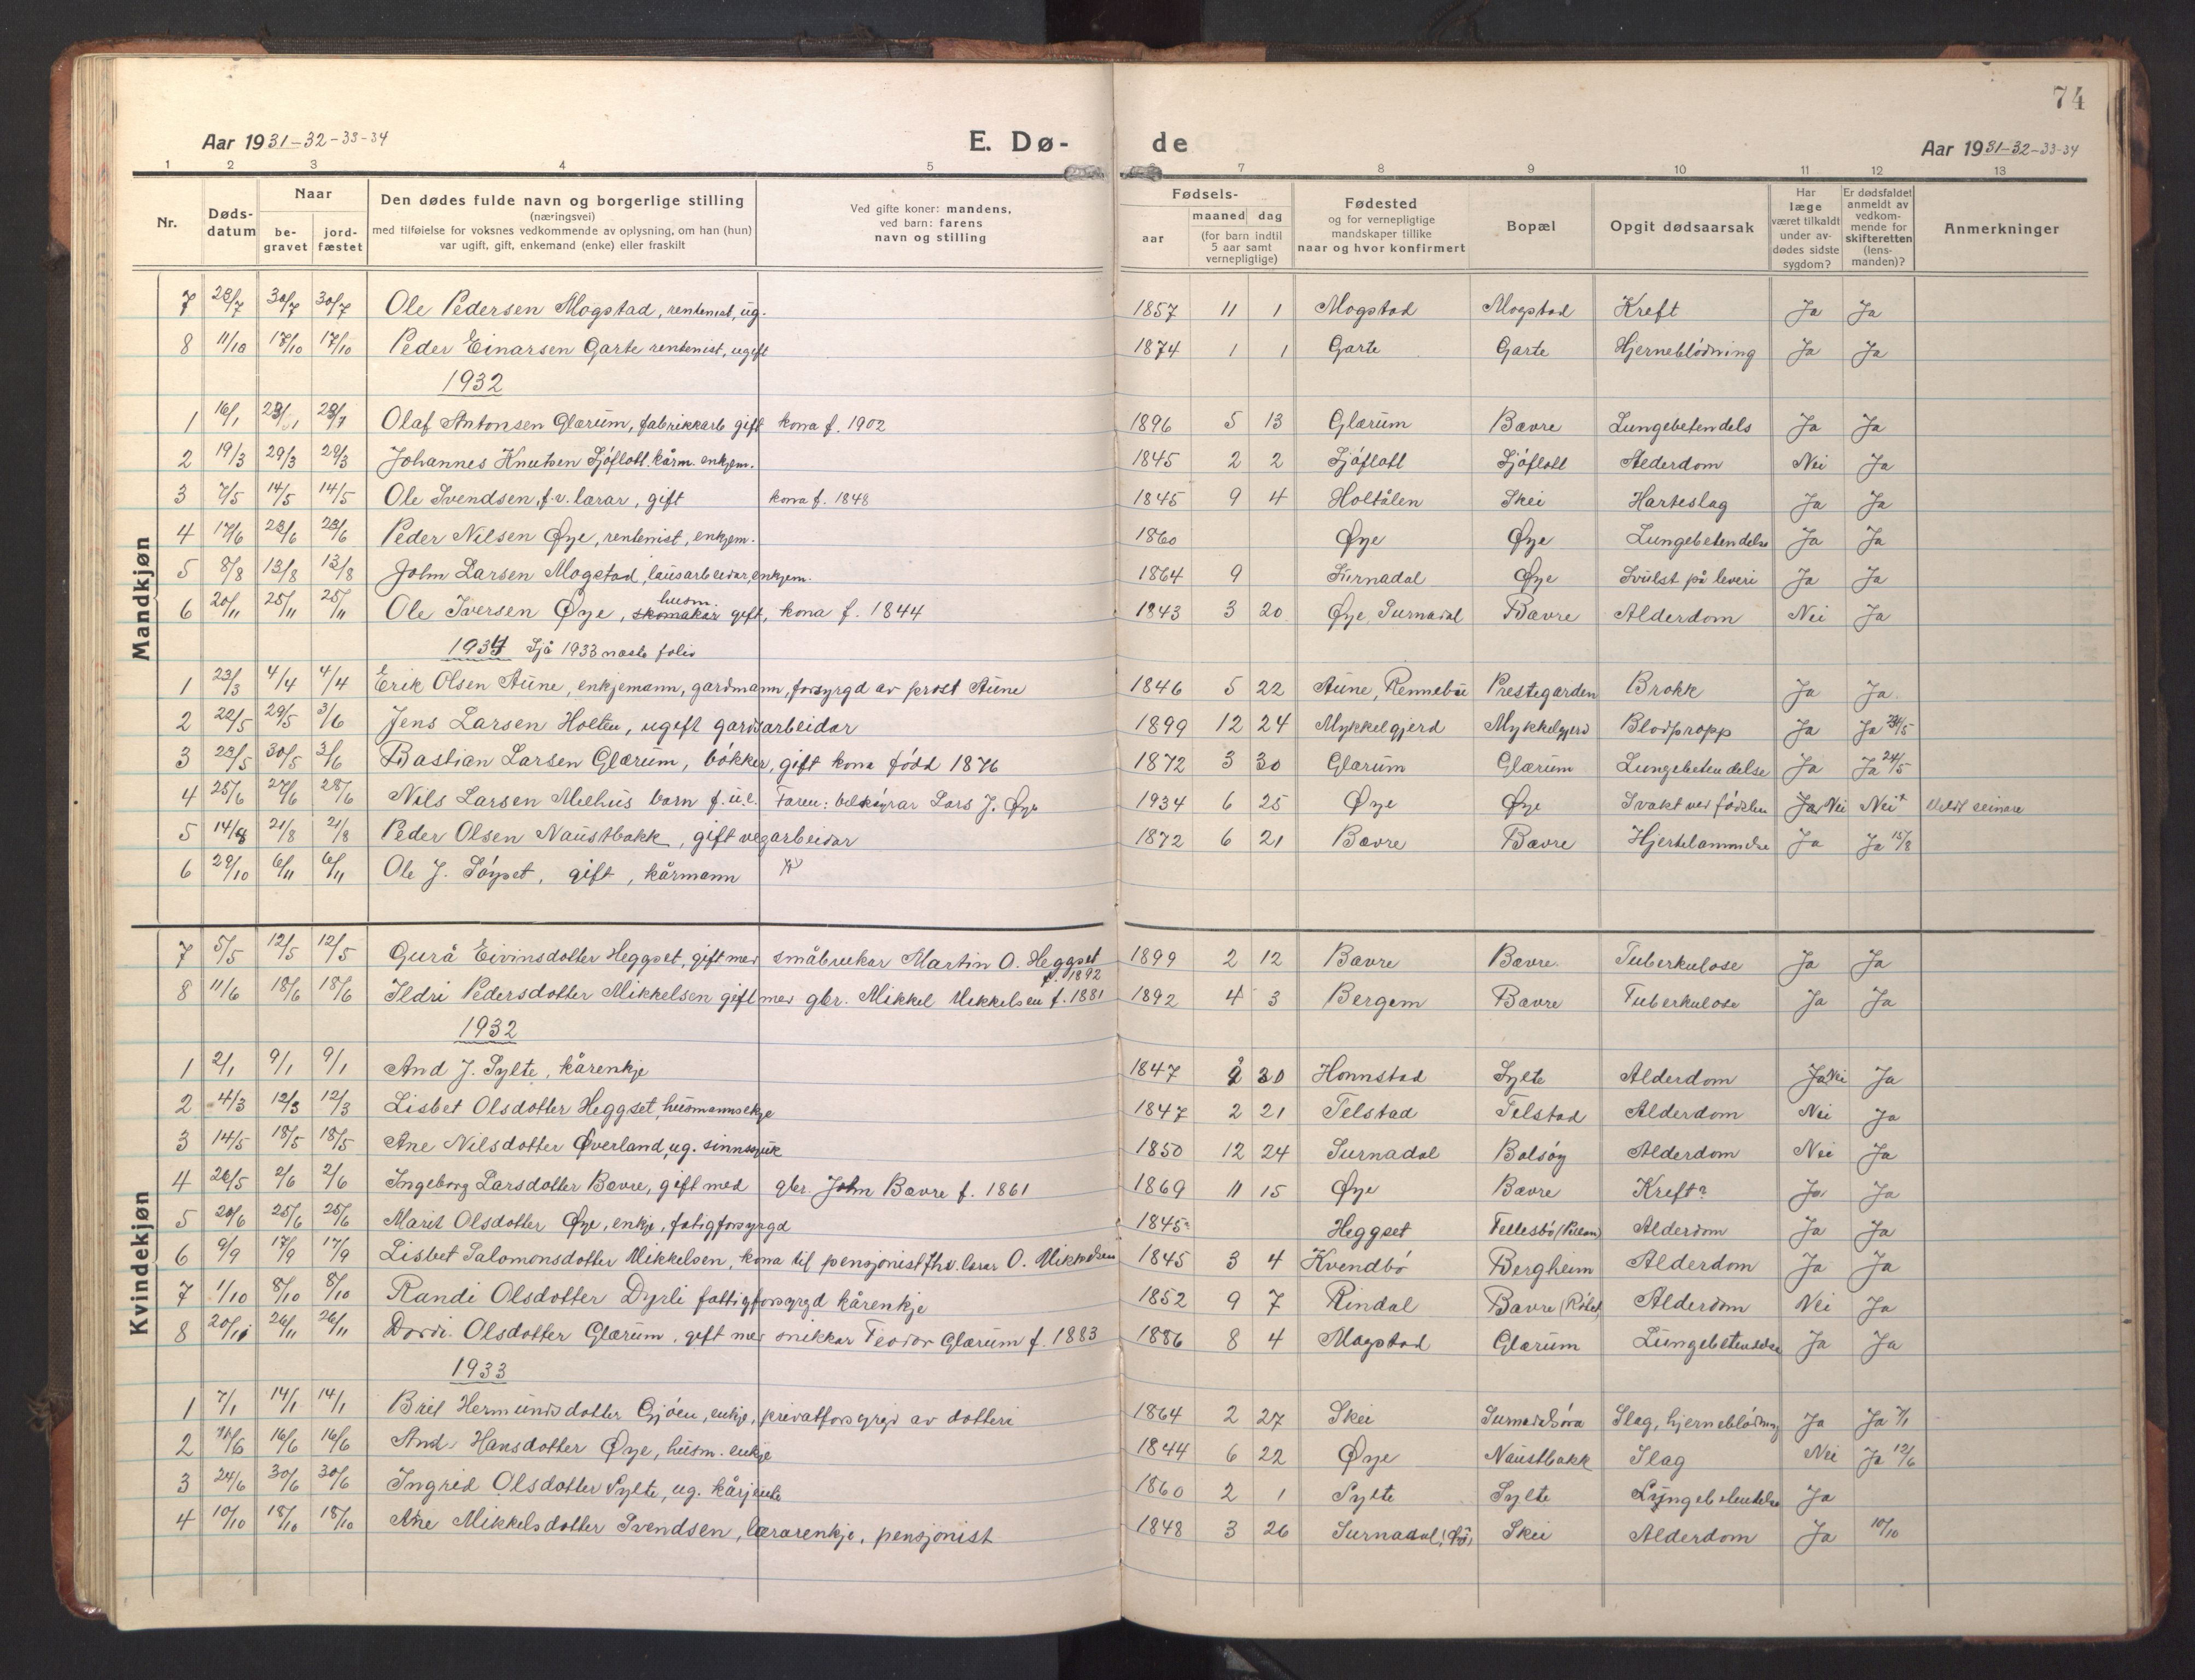 74
Aar 1931-32-33-34 E. Dø- de Aar 1931-32-33-34
1 2 3 4 5 7 8 9 10 11 12 13
Nr. Døds-datum Naar be-gravet jord-fæstet Den dødes fulde navn og borgerlige stilling (næringsvei) med tilføielse for voksnes vedkommende av oplysning, om han (hun) var ugift, gift, enkemand (enke) eller fraskilt Ved gifte koner: mandens, ved barn: farens navn og stilling Fødsels- aar maaned dag (for barn indtil 5 aar samt vernepligtige) Fødested og for vernepligtige mandskaper tillike naar og hvor konfirmert Bopæl Opgit dødsaarsak Har læge været tilkaldt under av-dødes sidste sygdom? Er dødsfaldet anmeldt av vedkom-mende for skifteretten (lens-manden)? Anmerkninger
Mandkjøn
7 28/7 30/7 30/7 Ole Pedersen Mogstad, rentenist, ug. 1857 11 1 Mogstad Mogstad Kreft Ja Ja
8 11/10 17/10 17/10 Peder Einarsen Garte rentenist, ugift 1874 1 1 Garte Garte Hjerneblødning Ja Ja
1932
1 16/1 23/1 23/1 Olaf Antonsen Glærum, fabrikkarb gift kona f. 1902 1896 5 13 Glærum Bævre Lungebetendels Ja Ja
2 19/3 29/3 29/3 Johannes Knutsen Sjøflott, kårm. enkjem. 1845 2 2 Sjøflott Sjøflott Alderdom Nei Ja
3 7/5 14/5 14/5 Ole Svendsen, f.v. lærar, gift kona f. 1848 1845 9 4 Holtålen Skei Harteslag Ja Ja
4 17/6 23/6 23/6 Peder Nilsen Øye, rentenist, enkjem. 1860 Øye Øye Lungebetendelse Ja Ja
5 8/8 13/8 13/8 John Larsen Mogstad, lausarbeidar, enkjem. 1864 9 Surnadal Øye Svulst på leveri Ja Ja
6 20/11 25/11 25/11 Ole Iversen Øye, skomakar husm. gift, kona f. 1844 1843 3 20 Øye, Surnadal Bævre Alderdom Nei Ja
1934 Sjå 1933 næste folio
1 23/3 4/4 4/4 Erik Olsen Aune, enkjemann, gardmann, forsyrgd av prost Aune 1846 5 22 Aune, Rennebu Prestegarden Brokk Ja Ja
2 22/5 29/5 3/6 Jens Larsen Holten, ugift gardsarbeidar 1899 12 24 Mykkelgjerd Mykkelgjerd Blodpropp Ja Ja 24/5
3 23/5 30/5 3/6 Bastian Larsen Glærum, bøkker, gift kona fødd 1876 1872 3 30 Glærum Glærum Lungebetendelse Ja Ja 24/5
4 25/6 27/6 28/6 Nils Larsen Melhus barn f.u.e. Faren: bilkøyrar Lars J. Øye 1934 6 25 Øye Øye Svakt ved fødslen Ja Nei Nei Meldt seinare
5 14/8 21/8 21/8 Peder Olsen Naustbakk, gift vegarbeidar 1872 6 21 Bævre Bævre Hjertelammelse Ja Ja 15/8
6 29/10 6/11 6/11 Ole J. Søyset, gift, kårmann
Kvindekjøn
7 5/5 12/5 12/5 Gurå Eivinsdotter Heggset, gift med småbrukar Martin O. Heggset f. 1892 1899 2 12 Bævre Bævre Tuberkulose Ja Ja
8 11/6 18/6 18/6 Ildri Pedersdotter Mikkelsen gift med gbr. Mikkel Mikkelsen f. 1881 1892 4 3 Bergem Bævre Tuberkulose Ja Ja
1932
1 2/1 9/1 9/1 And J. Sylte, kårenkje 1847 30 Honnstad Sylte Alderdom Ja Nei Ja
2 4/3 12/3 12/3 Lisbet Olsdotter Heggset, husmannsekje 1847 2 21 Telstad Telstad Alderdom Nei Ja
3 14/5 18/5 18/5 Ane Nilsdotter Øverland, ug. sinnssjuk 1850 12 24 Surnadal Bolsøy Alderdom Nei Ja
4 26/5 2/6 2/6 Ingeborg Larsdotter Bævre, gift med gbr. John Bævre f. 1861 1869 11 15 Øye Bævre Kreft? Ja Ja
5 20/6 25/6 25/6 Marit Olsdotter Øye, enkje, fatigforsyrgd 1845 Heggset Tellesbø Alderdom Ja Ja
6 9/9 17/9 17/9 Lisbet Salomonsdotter Mikkelsen, kona til pensjonist fhv. lærar O. Mikkelsen 1845 3 4 Kvendbø Bergheim Alderdom Ja Ja
7 1/10 8/10 8/10 Randi Olsdotter Dyrli fattigforsyrgd kårenkje 1852 9 7 Rindal Bævre Alderdom Nei Ja
8 20/11 26/11 26/11 Dordi Olsdotter Glærum, gift med snikkar Teodor Glærum f. 1883 1886 8 4 Mogstad Glærum Lungebetendelse Ja Ja
1933
1 7/1 14/1 14/1 Brit Hermundsdotter Gjøen, enkje, privatforsyrgd av dotteri 1864 2 27 Skei Surnadalsøra Slag, hjerneblødning Ja Ja 7/1
2 11/6 16/6 16/6 And Hansdotter Øye, husm. enkje 1844 6 22 Øye Naustbakk Slag Nei Ja 12/6
3 24/6 30/6 30/6 Ingrid Olsdotter Sylte, ug. kårjente 1860 2 1 Sylte Sylte Lungebetendelse Ja
4 10/10 18/10 18/10 Ane Mikkelsdotter Svendsen, lærarenkje, pensjonist 1848 3 26 Surnadal Skei Alderdom Ja 10/10